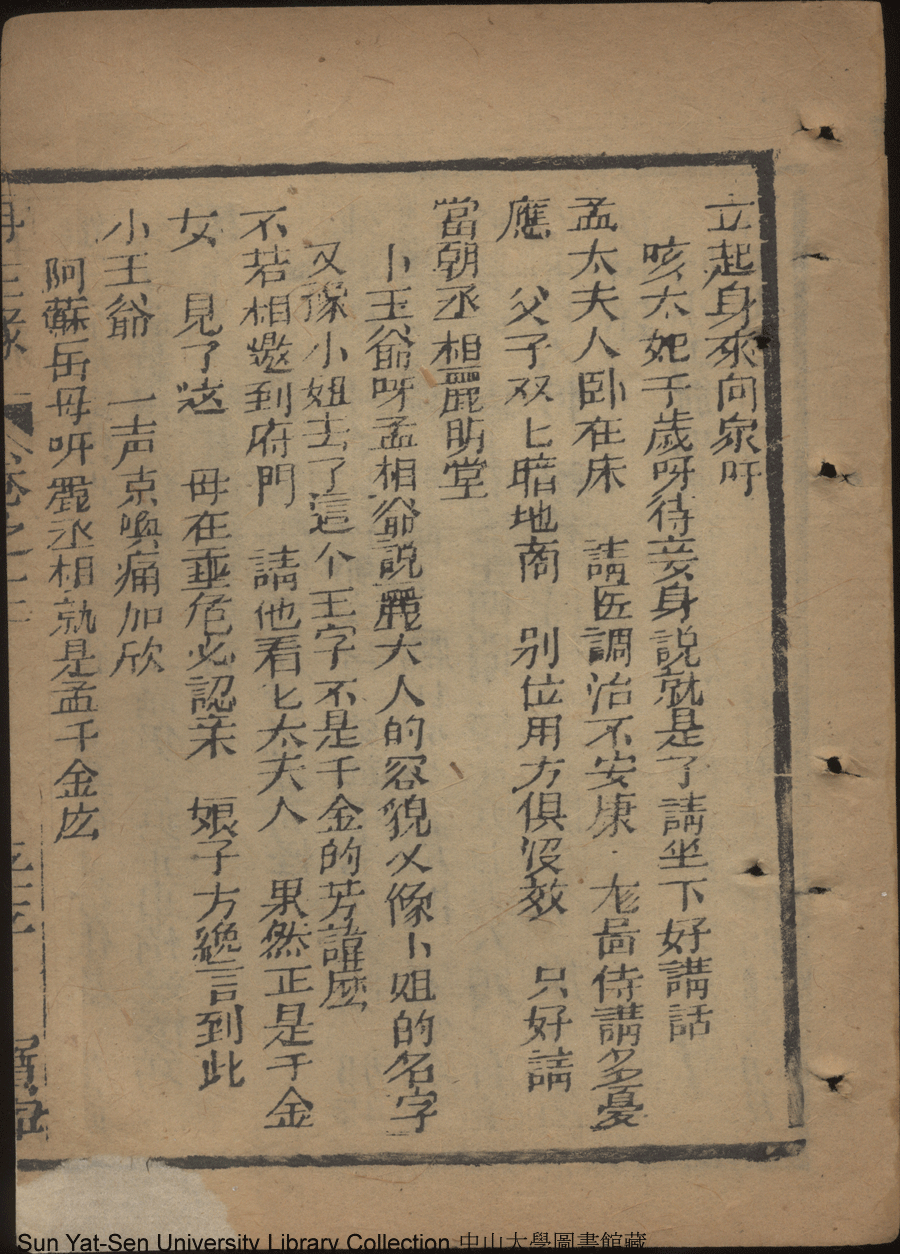 立起身來向衆吁
咳太妃千歲呀待妾身說就是了請坐下好講話
孟太夫人卧在床　請医調治不安康　尨啚侍講多憂
應　父子双匕暗地商　别位用方俱没効　只好請
當朝丞相酈明堂
卜王爺呀孟相爺説酈大人的容貌乂像卜姐的名字
又像小姐去了這个王字不是千金的芳諱庅
不若相邀到府門　請他看匕太夫人　果然正是千金
女　見了这　母在垂危必認亲　娘子方纔言到此
小王爺　一声京喚痛加欣
阿蘇岳母呀酈丞相就是孟千金庅
再生緣　卷之十
Sun Yat-Sen University Library Collection 中山大學圖書館藏